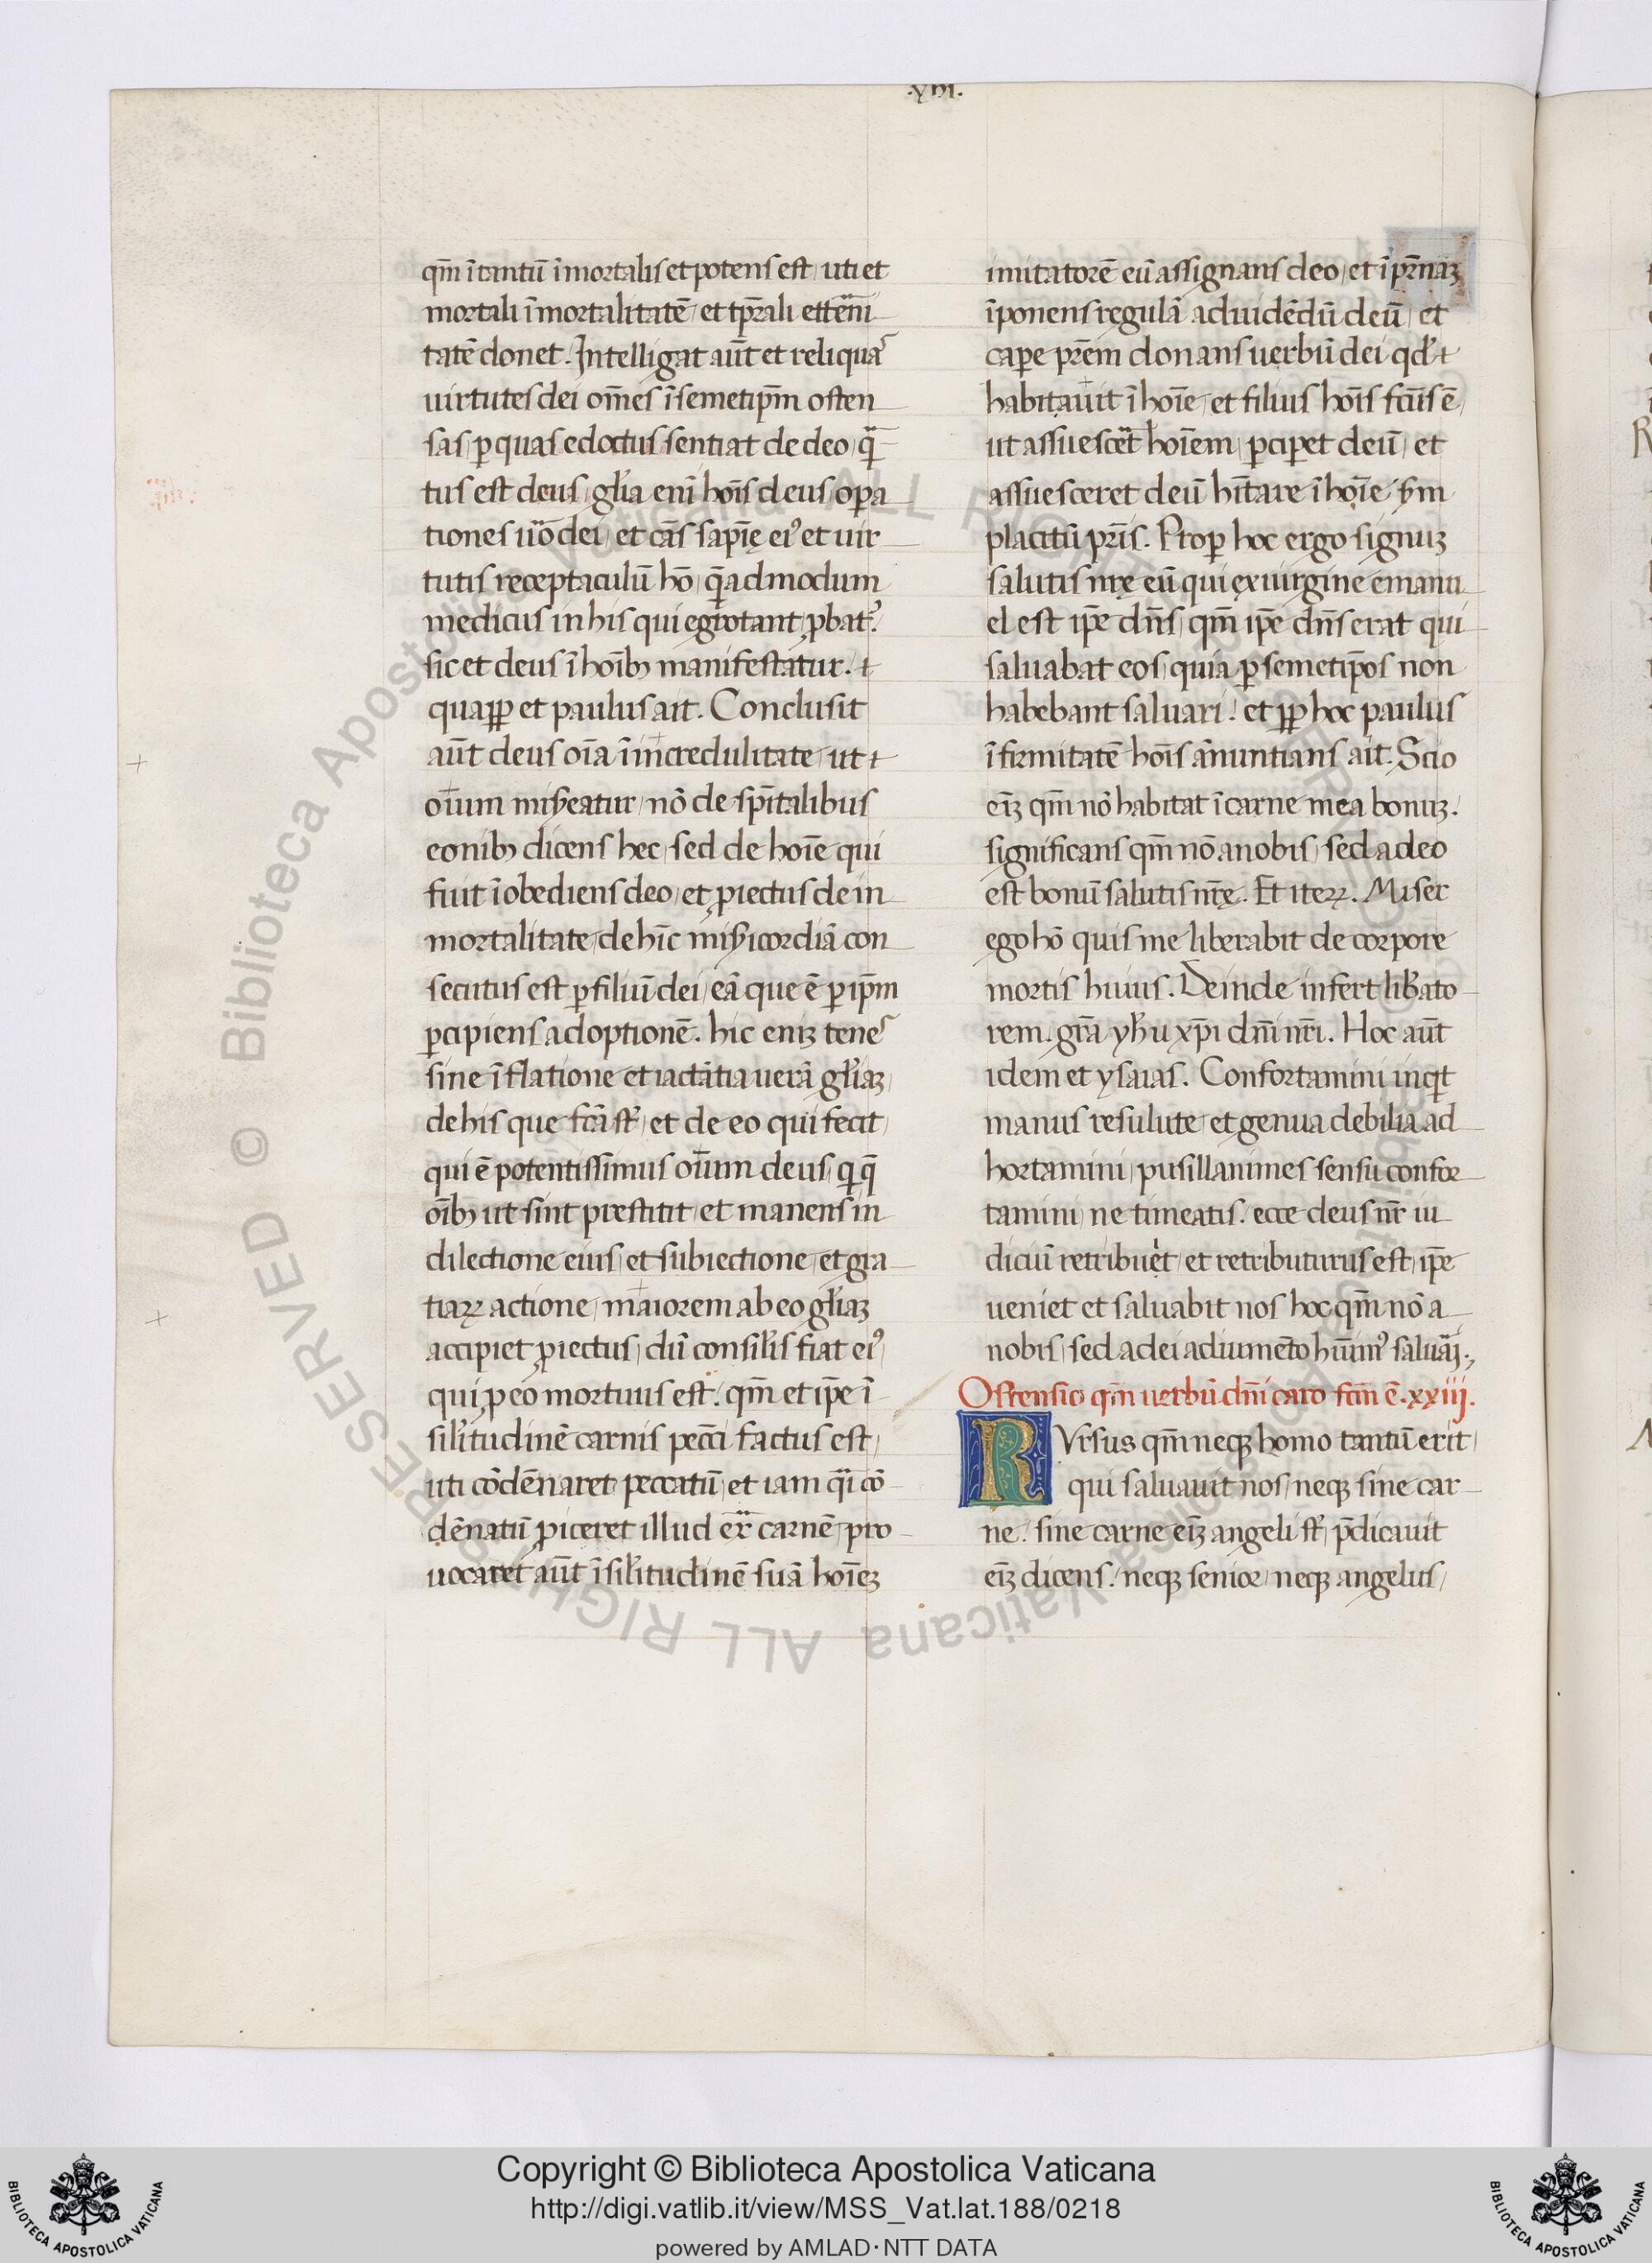 .XVII.
qm̄ ītantū īmortalis et potens est, uti et
mortali īmortalitatē, et tp̄rali ettērni
tatē donet. Intelligat aūt et reliquas
uirtutes dei om̄es īsemetip̄m osten
sas, p quas edoctus sentiat de deo, q̄
tus est deus, gl̄ia enī hoīs deus, opa
tiones uō dei, et oīs sapīę ei9 et uir
tutis receptaculū hō, q̄admodum
medicus in his qui egrotant, pbat2.
sic et deus ī hoīb3 manifestatur. +
quapp et paulus ait. Conclusit
aūt deus oīa īincredulitate, ut +
oīum misereatur, nō de spītalibus
eonib3 dicens hec, sed de hoīe qui
fuit īobediens deo, et piectus de in
mortalitate, dehīc misericordiā con
secutus est p filiū dei, eā que ē p ip̄m
pcipiens adoptionē. hic eni3 tenes
sine īflatione et iactātia uerā gl̄ia3,
de his que fcā st̄, et de eo qui fecit,
qui ē potentissimus oīum deus, q q̄
oīb3 ut sint prestitit, et manens in
dilectione eius, et subiectione, et gra
tiaꝝ actione, maiorem ab eo gl̄ia3
accipiet piectus, dū consilīs fiat ei9,
qui p eo mortuus est. qm̄ et ip̄e ī
sil̄itudinē carnis pecc̄i factus est,
uti cōdēnaret peccatū, et iam q̄i cō
dēnatū piceret illud ex̄ carnē, pro
uocaret aūt īsil̄itudinē suā hoīe3
imitatorē eū assignans deo, et īpr̄na3
īponens regulā ad uidēdū deū, et
cape pr̄em donans uerbū dei qd̄ +
habitauit ī hoīe, et filius hoīs fc̄us ē,
ut assuescēt hoīem, pcipet deū, et
assuesceret deū hītare ī hoīe, s̄m
placitū pr̄is. Prop hoc ergo signu3
salutis nrę eū qui ex uirgine emanu
el est ip̄e dn̄s, qm̄ ip̄e dn̄s erat qui
saluabat eos, quia p semetip̄os non
habebant saluari. et pp hoc paulus
īfirmitatē hoīs ānuntians ait. Scio
ei3 qm̄ nō habitat ī carne mea bonu3.
significans qm̄ nō a nobis, sed a deo
est bonū salutis nr̄ę. Et iteꝝ. Miser
ego hō quis me liberabit de corpore
mortis huius. Deinde infert lib̄ato
rem. gr̄a yh̄u xp̄i dn̄i nr̄i. Hoc aūt
idem et ysaias. Confortamini inqt
manus resulute, et genua debilia ad
hortamini, pusillanimes sensu confor
tamini, ne timeatis. ecce deus nr̄ iu
diciū retribuet, et retributurus est, ip̄e
ueniet et saluabit nos hoc qm̄ nō a
nobis, sed a dei adiumēto hūim9 saluāi.,
Ostensio qm̄ uerbū dn̄i caro fc̄m ē. xxiij.
RVrsus qm̄ neqꝫ homo tantū erit,
qui saluauit nos, neqꝫ sine car
ne. sine carne ei3 angeli st̄, p̄dicauit
ei3 dicens. neqꝫ senior, neqꝫ angelus,
Copyright © Biblioteca Apostolica Vaticana
http://digi.vatlib.it/view/MSS_Vat.lat.188/0218
powered by AMLAD·NTT DATA
BIBLIOTECA APOSTOLICA VATICANA
BIBLIOTECA APOSTOLICA VATICANA
© Biblioteca Apostolica Vaticana ALL RIGHTS RESERVED